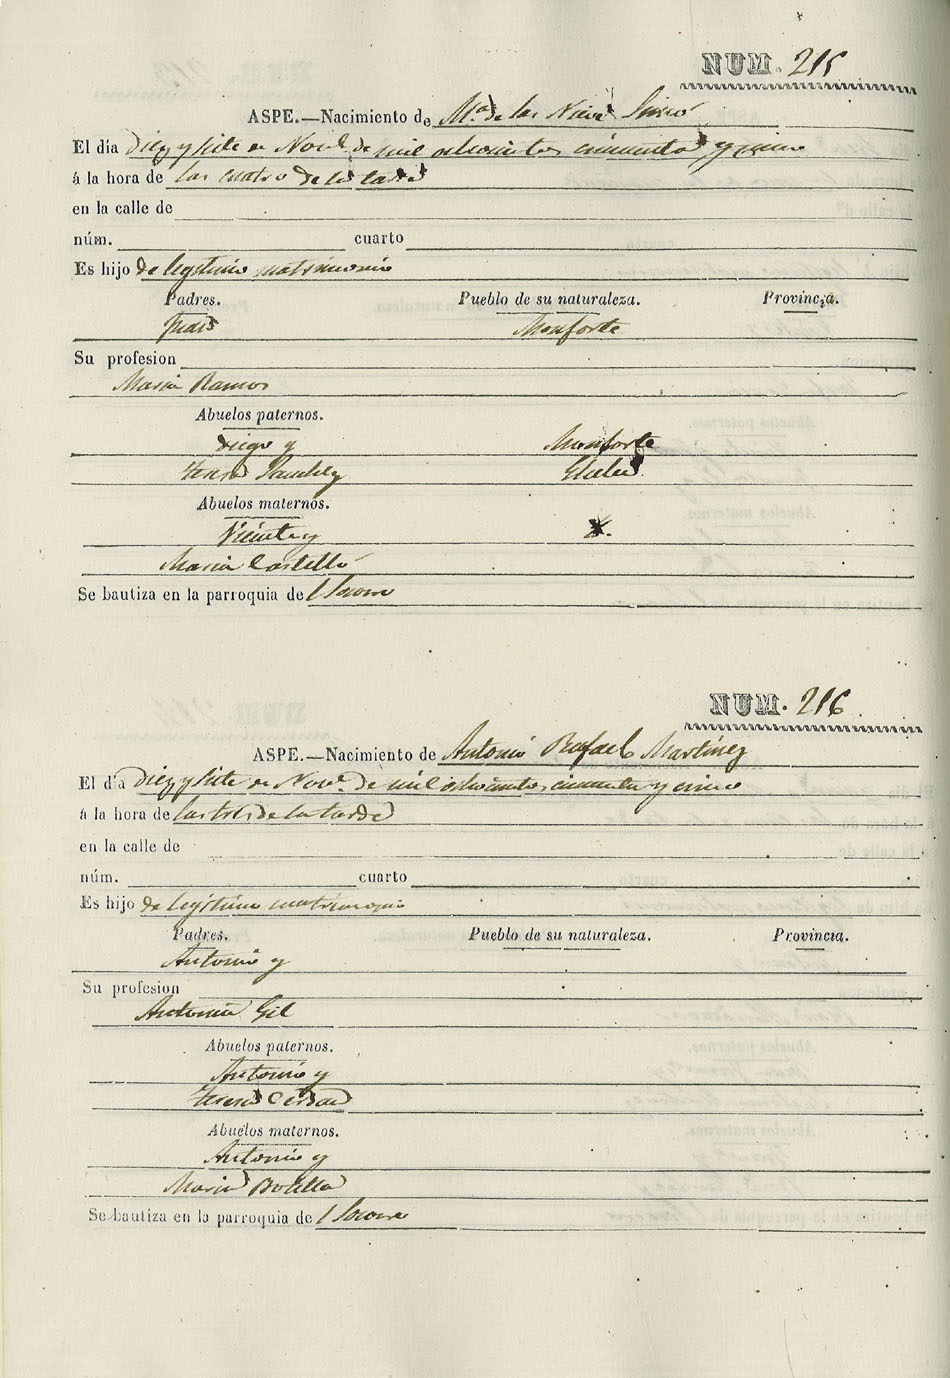 NUM. 215
ASPE.—Nacimiento de Mª de las Nieves
El día diez y siete de Novᵉ de mil ochocientos cincuenta y cinco
á la hora de las cuatro de la tarde
en la calle de
núm. cuarto
Es hijo de legitimo matrimonio
Padres. Pueblo de su naturaleza. Provincia.
Monforte
Su profesion
Maria Ramos
Abuelos paternos.
Diego y Monforte
Teresa Sanchez
Abuelos maternos.
Vicente y
Maria Castelló
Se bautiza en la parroquia del Socorro
NUM. 216
ASPE.—Nacimiento de Antonio Rafael Martinez
El día diez y siete de Novᵉ de mil ochocientos cincuenta y cinco
á la hora de las tres de la tarde
en la calle de
núm. cuarto
Es hijo de legitimo matrimonio
Padres. Pueblo de su naturaleza. Provincia.
Antonio y
Su profesion
Antonia Gil
Abuelos paternos.
Antonio y
Teresa
Abuelos maternos.
Antonio y
Maria Botella
Se bautiza en la parroquia del Socorro